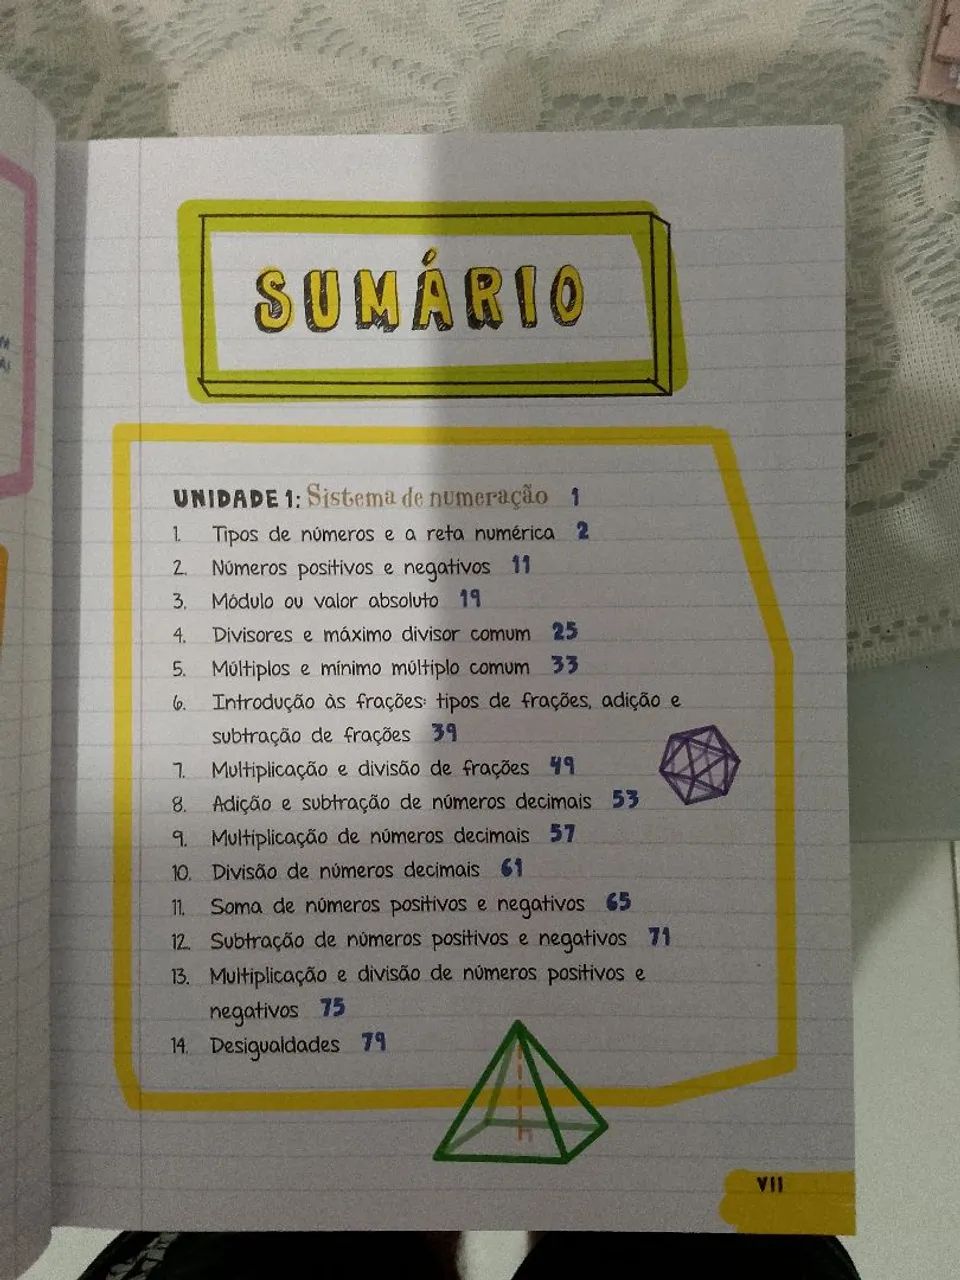 SUMÁRIO
UNIDADE 1: Sistema de numeração 1
1. Tipos de números e a reta numérica 2
2. Números positivos e negativos 11
3. Módulo ou valor absoluto 19
4. Divisores e máximo divisor comum 25
5. Múltiplos e mínimo múltiplo comum 33
6. Introdução às frações: tipos de frações, adição e
subtração de frações 39
7. Multiplicação e divisão de frações 49
8. Adição e subtração de números decimais 53
9. Multiplicação de números decimais 57
10. Divisão de números decimais 61
11. Soma de números positivos e negativos 65
12. Subtração de números positivos e negativos 71
13. Multiplicação e divisão de números positivos e
negativos 75
14. Desigualdades 79
VII